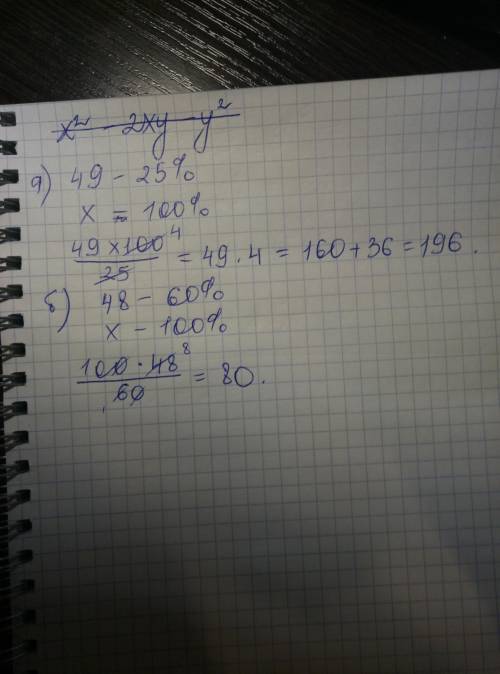 x² - 2xy - y²
а) 49 - 25%
x = 100%
49 × 100 4 / 25 = 49 · 4 = 160 + 36 = 196.
б) 48 - 60%
x - 100%
100 · 48 8 / 60 = 80.